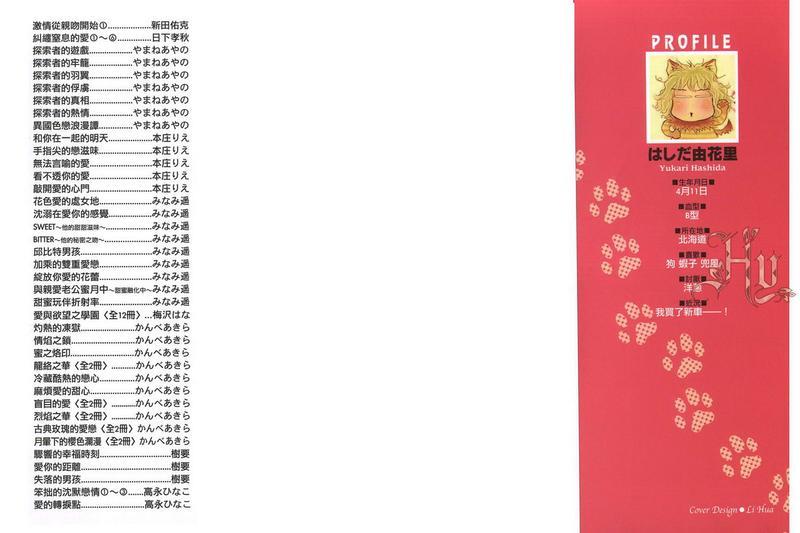 激情從親吻開始①....................新田佑克
糾纏窒息的愛①～⑥..............日下孝秋
探索者的遊戲................やまねあやの
探索者的牢籠................やまねあやの
探索者的羽翼................やまねあやの
探索者的俘虜................やまねあやの
探索者的真相................やまねあやの
探索者的熱情................やまねあやの
異國色戀浪漫譚............やまねあやの
和你在一起的明天................本庄りえ
手指尖的戀滋味....................本庄りえ
無法言喻的愛........................本庄りえ
看不透你的愛........................本庄りえ
敲開愛的心門........................本庄りえ
花色愛的處女地....................みなみ遥
沈溺在愛你的感覺................みなみ遥
SWEET～他的甜甜滋味～................みなみ遥
BITTER～他的秘密之吻～................みなみ遥
邱比特男孩............................みなみ遥
加乘的雙重愛戀....................みなみ遥
綻放你愛的花蕾....................みなみ遥
與親愛老公蜜月中～甜蜜融化中～....みなみ遥
甜蜜玩伴折射率....................みなみ遥
愛與欲望之學園〈全12冊〉...梅沢はな
灼熱的凍獄........................かんべあきら
情焰之鎖............................かんべあきら
蜜之烙印............................かんべあきら
龍絡之華〈全2冊〉............かんべあきら
冷藏酷熱的戀心................かんべあきら
麻煩愛的甜心....................かんべあきら
盲目的愛〈全2冊〉............かんべあきら
烈焰之華〈全2冊〉............かんべあきら
古典玫瑰的愛戀〈全2冊〉かんべあきら
月暈下的櫻色瀰漫〈全2冊〉かんべあきら
驟響的幸福時刻........................樹要
愛你的距離................................樹要
失落的男孩................................樹要
笨拙的沈默戀情①～③.......高永ひなこ
愛的轉捩點........................高永ひなこ
PROFILE
はしだ由花里
Yukari Hashida
■生年月日■
4月11日
■血型■
B型
■所在地■
北海道
■喜歡■
狗 蝦子 兜風
■討厭■
洋蔥
■近況■
我買了新車——！
Hy
Cover Design●Li Hua